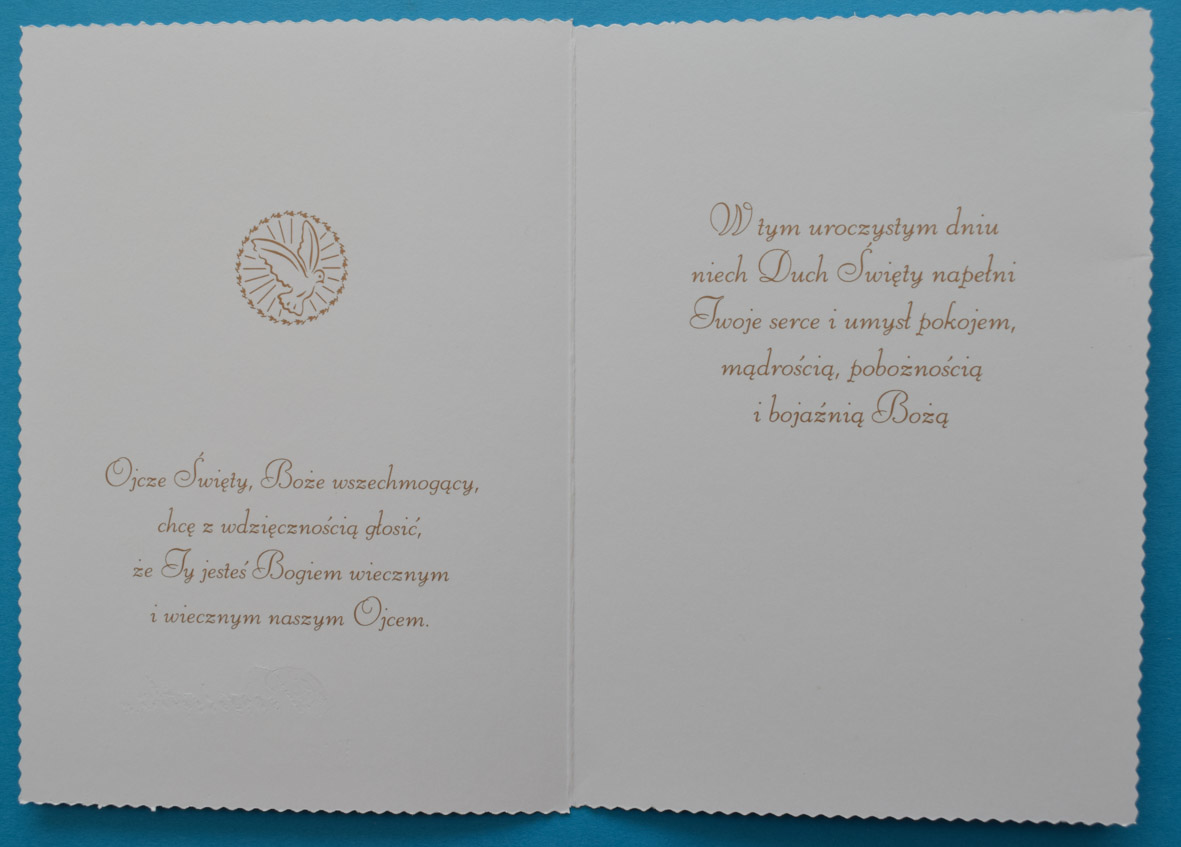 Ojcze Święty, Boże wszechmogący,
chcę z wdzięcznością głosić,
że Ty jesteś Bogiem wiecznym
i wiecznym naszym Ojcem.
W tym uroczystym dniu
niech Duch Święty napełni
Twoje serce i umysł pokojem,
mądrością, pobożnością
i bojaźnią Bożą